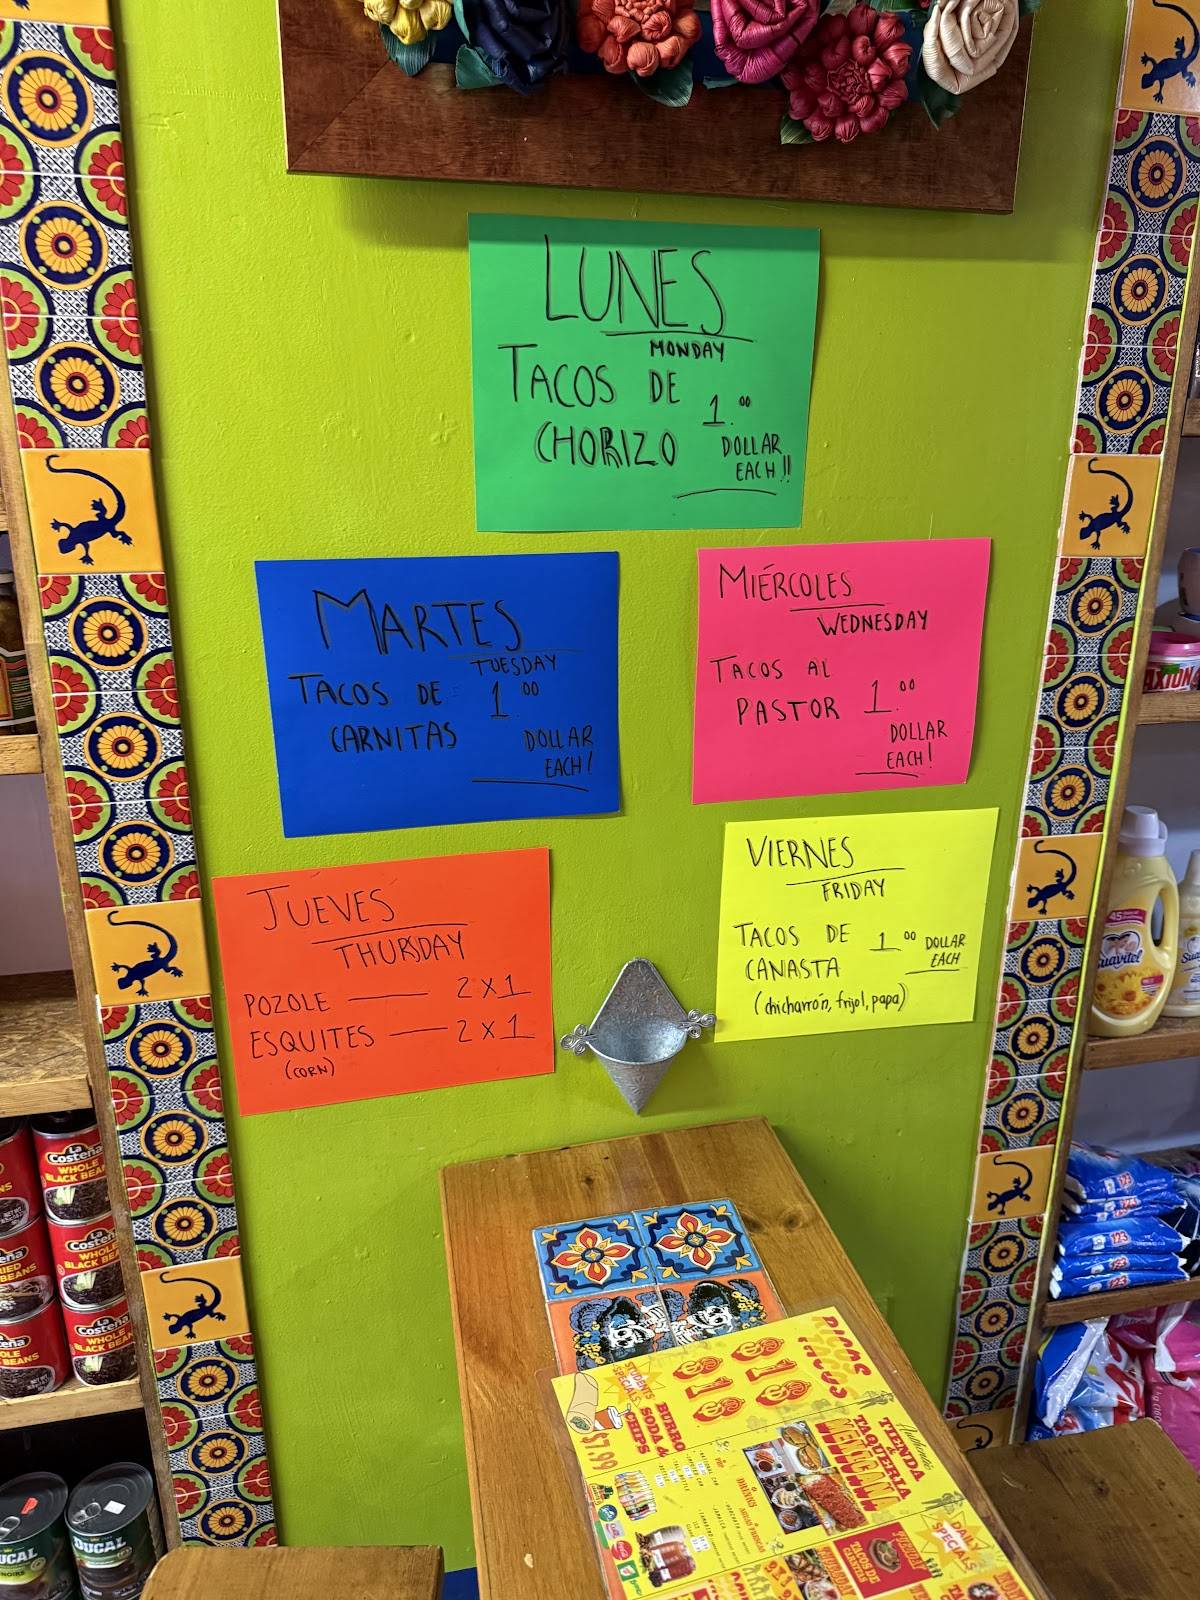 LUNES
MONDAY
TACOS DE
CHORIZO
1.00
DOLLAR
EACH!!
MARTES
TUESDAY
TACOS DE
CARNITAS
1.00
DOLLAR
EACH!
MIÉRCOLES
WEDNESDAY
TACOS AL
PASTOR
1.00
DOLLAR
EACH!
JUEVES
THURSDAY
POZOLE — 2X1
ESQUITES — 2X1
(CORN)
VIERNES
FRIDAY
TACOS DE
CANASTA
1.00
DOLLAR
EACH
(chicharrón, frijol, papa)
RICOS
TACOS
Authentic
TIENDA
TAQUERIA
MEXICANA
STUDENTS
SPECIALS
BURRO
SODA &
CHIPS
$7.99
DRINKS
DAILY
SPECIALS
TUESDAY
TACOS DE
CARNITAS
La
Costeña
WHOLE
BLACK BEANS
La
Costeña
WHOLE
BLACK BEANS
La
Costeña
WHOLE
BLACK BEANS
DUCAL
Suavitel
45
123
123
123